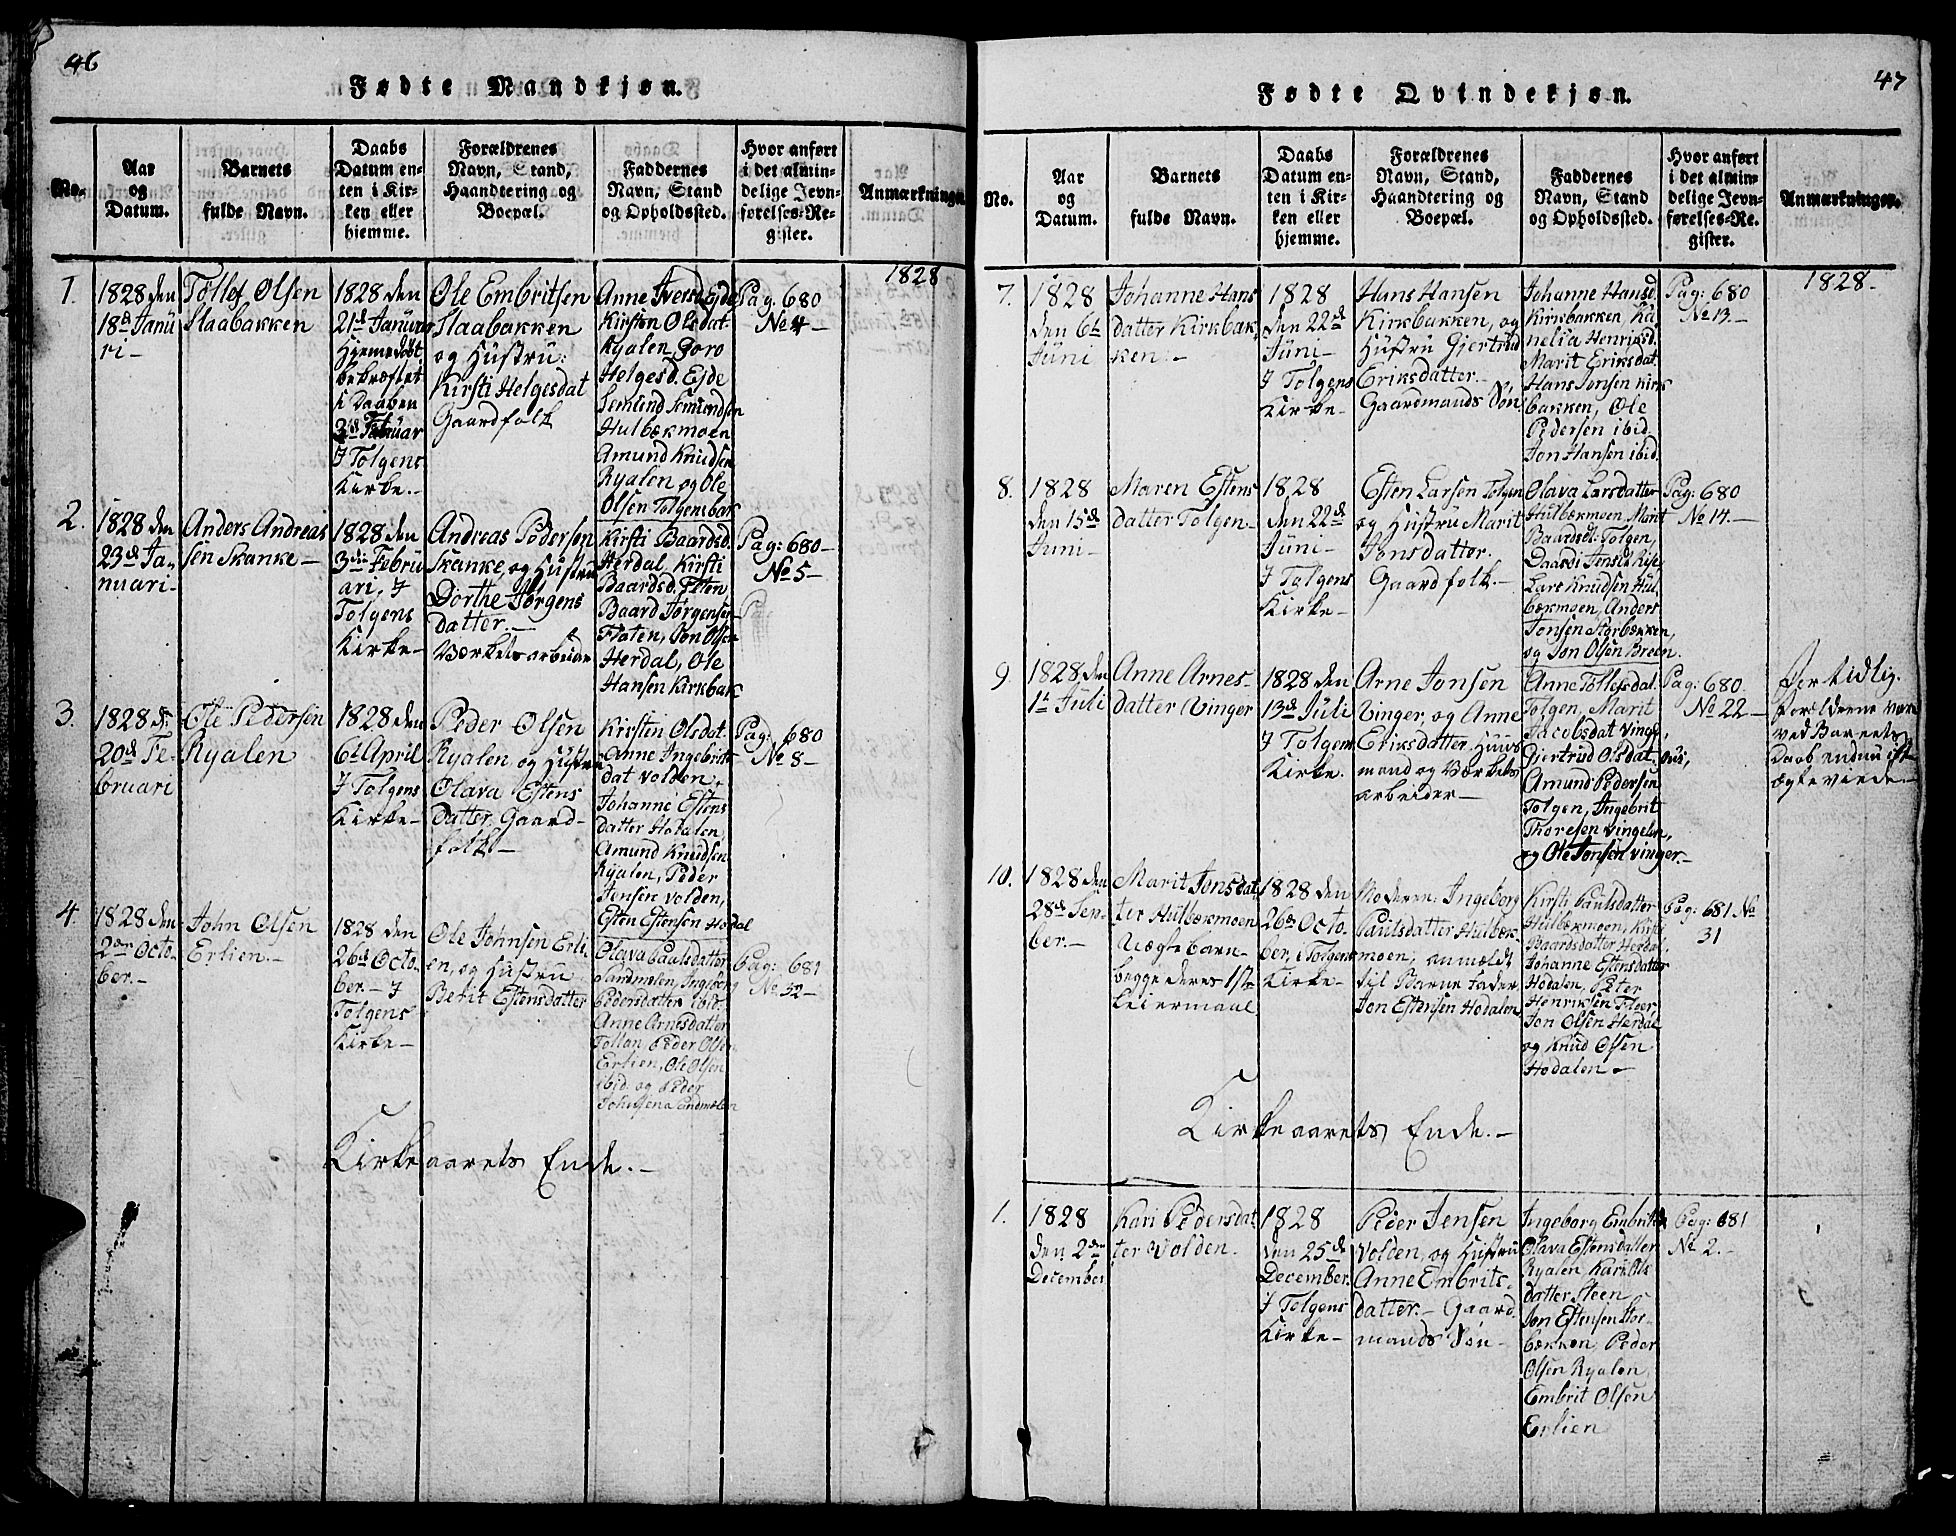 46
Fødte Mandkjøn.
No.
Aar
og
Datum.
Barnets
fulde Navn.
Daabs
Datum en-
ten i Kir-
ken eller
hjemme.
Forældrenes
Navn, Stand,
Haandtering og
Boepæl.
Faddernes
Navn, Stand
og Opholdssted.
Hvor anført
i det almin-
delige Jevn-
førelses-Re-
gister.
Anmærkninger.
1828
1.
1828 den
18d Janu
ri -
Tollef Olsen
Slaabakken
1828 den
21d Januar
Hjemedøbt
bekræftet
i Daaben
3die Februar
I Tolgens
Kirke.-
Ole Embritsen
Slaabakken
og Hustru:
Kirsti Helgesdat
Gaardfolk
Anne Iversd. Ejde
Kirsten Olsdat.
Ryalen, Goro
Helgesd. Ejde
Semund Semundsen
Hulbækmoen
Amund Knudsen
Ryalen og Ole
Olsen Tolgensbak
Pag. 680
No 4 -
2.
1828 den
23d Ja-
nuari-
Anders Andreas
sen Skanke -
1828 den
3die Febru
ari, I
Tolgens
Kirke -
Andreas Pedersen
Skanke, og Hustru
Dorthe Jørgens
datter.-
Værkets arbeider
Kirsti Baardsd.
Herdal, Kirsti
Baardsd. Eten
Baard Jørgensen
Floten, Jon Olsen
Herdal, Ole
Hansen Kirkbak
Pag: 680-
No 5 -
3.
1828 d:
20d Fe-
bruari
Ole Pedersen
Ryalen
1828 den
6t April
I Tolgens
Kirke -
Peder Olsen
Ryalen og Hustru
Olava Estens
datter, Gaard-
folk -
Kirsten Olsdat.
Anne Ingebrits
dat Volden,
Johanne Estens
datter Hodalen
Amund Knudsen
Ryalen, Peder
Jensen Volden,
Esten Estensen Hodal
Pag: 680
No 8 -
4
1828 den
2den Octo-
ber.-
John Olsen
Erlien.-
1828 den
26d Octo-
ber.- I
Tolgens
Kirke -
Ole Johnsen Erli
en, og Hustru
Berit Estensdatter
Olava Paulsdatter
Sandmælen, Ingeborg
Pedersdatter ibid.
Anne Arnesdatter
Tollan Peder Olsen
Erlien, Ole Olsen
ibid. og Peder
Johnsen Sandmælen
Pag: 681
No 32 -
Kirkeaarets Ende.-
47
Fødte Qvindekjøn.
No.
Aar
og
Datum.
Barnets
fulde Navn.
Daabs
Datum en-
ten i Kir-
ken eller
hjemme.
Forældrenes
Navn, Stand,
Haandtering og
Boepæl.
Faddernes
Navn, Stand
og Opholdssted.
Hvor anført
i det almin-
delige Jevn-
førelses-Re-
gister.
Anmærkninger.
1828-
7.
1828
den 6t
Juni
Johanne Hans
datter Kirkbak
ken.-
1828
den 22d
Juni -
I Tolgens
Kirke -
Hans Hansen
Kirkbakken, og
Hustru Gjertrud
Eriksdatter.-
Gaardmands Søn
Johanne Hansd.
Kirkbakken, Ka
nelia Henriksd.
Marit Eriksdat.
Hans Jonsen Kirk
bakken, Ole
Pedersen ibid.
Jon Hansen ibid.
Pag: 680
No 13.-
8.
1828
den 15d
Juni -
Maren Estens
datter Tolgen-
1828
den 22d
Juni -
I Tolgens
Kirke -
Esten Larsen Tolgen
og Hustru Marit
Jonsdatter.
Gaardfolk.-
Olava Larsdatter
Hulbækmoen, Marit
Baardsd: Tolgen,
Lars Knudsen Hul
bækmoen, Anders
Jonsen Storbækken,
og Jon Olsen Breen.
Pag: 680
No 14.-
9.
1828 den
1t Juli
Anne Arnes-
datter Vinger
1828 den
13d Juli
I Tolgens
Kirke.
Arne Jonsen
Vinger, og Anne
Eriksdatter. Huus
mand og Værkets
arbeider -
Anne Tollefsdat.
Tolgen, Marit
Jacobsdat Vinger,
Gjertrud Olsdat.
Amund Pedersen
Tolgen, Ingebrit
Thoresen Vingelen,
og Ole Jonsen Vinger.-
Pag: 680.
No 22 -
For tidlig.
Forældrene vare
ved Barnets
Daab endnu ikke
ægteviede.-
10.
1828 den
28d Sep-
ber.-
Marit Jonsdat
ter Hulbækmoen
Uægte barn-
begge deres 1ste
Leiermaal
1828 den
26d Octo-
ber, i Tolgens
Kirke -
Moderen: Ingeborg
Paulsdatter Hulbæk-
moen, anmældt
til Barne fader
Jon Estensen Hodalen
Kirsti Paulsdatter
Hulbækmoen, Kirsti
Baardsdatter Herdal,
Johanne Estensdatter
Hodalen, Peter
Henriksen Floer
Jon Olsen Herdal
og Knud Olsen
Hodalen -
Pag: 681 No
31
Kirkeaarets Ende.-
1.
1828
den 2den
December
Kari Pedersdat
ter Volden.
1828
den 25d
December.
I Tolgens
Kirke -
Peder Jensen
Volden, og Hustru
Anne Embrits-
datter.- Gaard
mands Søn -
Ingeborg Embritsd
Olava Estensdatter
Ryalen, Kari Ols
datter Steen
Jon Estensen Stor
bækken, Peder
Olsen Ryalen,
Embrit Olsen
Erlien
Pag: 681
No 2.-